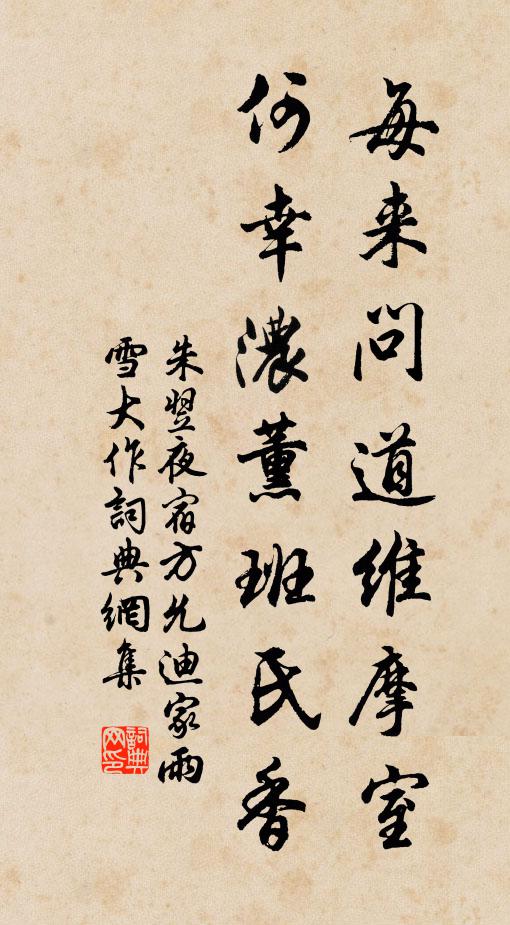 每来问道维摩室
何幸濃薰班氏香
朱翌夜宿方允迪家雨
雪大作詞典網集
詞典
网印